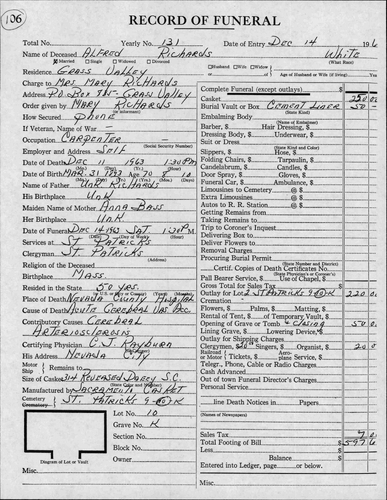 106
RECORD OF FUNERAL
Total No. Yearly No. 131 Date of Entry Dec 14
Name of Deceased ALFRED RICHARDS White
Married Single Widowed Divorced
(What Race)
Husband Wife Widow
Age of Husband or Wife (if living) Yrs.
Residence GRASS VALLEY
Charge to MRS. MARY RICHARDS
Address P.O. Box - GRASS VALLEY
Order given by MARY RICHARDS
How Secured PHONE
If Veteran, Name of War -
Occupation CARPENTER
(Social Security Number)
Employer and Address SELF
Date of Death DEC 11 1963 1:30 PM
Date of Birth MAR. 31 1893 Age 70 8 10
Name of Father UNK RICHARDS
His Birthplace UNK
Maiden Name of Mother ANNA BASS
Her Birthplace UNK
Date of Funeral DEC 14 1963 SAT 1:30 PM
Services at ST PATRICKS
Clergyman ST. PATRICKS
Religion of the Deceased
Birthplace MASS.
Resided in the State 50 YRS.
Place of Death NEVADA COUNTY HOSPITAL
Cause of Death ACUTE CEREBRAL VAS. ACC.
Contributory Causes CEREBRAL
ARTERIOSCLEROSIS
Certifying Physician C.J. RAYBURN
His Address NEVADA CITY
Motor Ship Remains to
Size of Casket 314 REVERSED S.C.
Manufactured by SACRAMENTO CASKET
Cemetery Crematory ST. PATRICKS
Lot No. 10
Grave No. K
Section No.
Block No.
Owner
Diagram of Lot or Vault
Misc.
Complete Funeral (except outlays) $
Casket 250 00
Burial Vault or Box CEMENT LINER 50 -
(State Kind)
Embalming Body
(Name of Embalmer)
Barber, $ Hair Dressing, $
Dressing Body, $ Underwear, $
Suit or Dress
(State Kind and Color)
Slippers, $ Hose, $
Folding Chairs, $ Tarpaulin, $
Candelabrum, $ Candles, $
Door Spray, $ Gloves, $
Funeral Car, $ Ambulance, $
Limousines to Cemetery @ $
Extra Limousines @ $
Autos to R. R. Station @ $
Getting Remains from
Taking Remains to
Trip to Coroner's Inquest
Delivering Box to
Deliver Flowers to
Removal Charges
Procuring Burial Permit
(State Permit Number and District)
Certif. Copies of Death Certificates No.
Pall Bearer Service, $ Use of Chapel, $
Gross Total for Sales Tax
Outlay for Lot 2 ST PATRICKS 220 00
Cremation
Flowers, $ Palms, $ Matting, $
Rental of Tent, $ of Temporary Vault, $
Opening of Grave or Tomb & Closing 50 00
Lining Grave, $ Lowering Device, $
Outlay for Shipping Charges
Clergyman, $20 00 Singers, $ Organist, $ 20 00
Railroad or Motor Tickets, $ Aeroplane Service, $
Telegr., Phone, Cable or Radio Charges
Cash Advanced
Out of town Funeral Director's Charges
Personal Service
line Death Notices in Papers
(Names of Newspapers)
Sales Tax
Total Footing of Bill
Less
Balance
Entered into Ledger, page or below.
Misc.